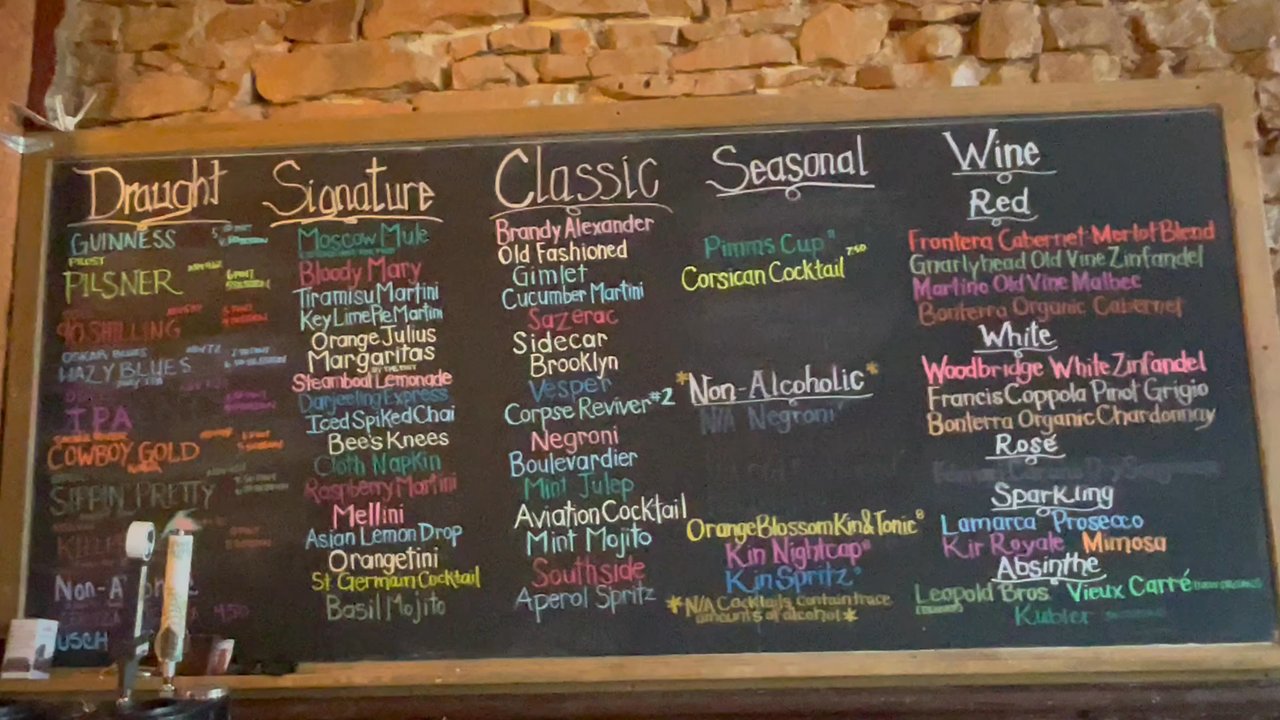 Draught
GUINNESS
PILSNER
90 SHILLING
OSKAR BLUES
HAZY BLUES
IPA
COWBOY GOLD
SIPPIN' PRETTY
Non-A
USCH
Signature
Moscow Mule
Bloody Mary
Tiramisu Martini
Key Lime Pie Martini
Orange Julius
Margaritas
Steamboat Lemonade
Darjeeling Express
Iced Spiked Chai
Bee's Knees
Cloth Napkin
Raspberry Martini
Mellini
Asian Lemon Drop
Orangetini
St Germain Cocktail
Basil Mojito
Classic
Brandy Alexander
Old Fashioned
Gimlet
Cucumber Martini
Sazerac
Sidecar
Brooklyn
Vesper
Corpse Reviver #2
Negroni
Boulevardier
Mint Julep
Aviation Cocktail
Mint Mojito
Southside
Aperol Spritz
Seasonal
Pimms Cup
Corsican Cocktail 7.50
*Non-Alcoholic*
N/A Negroni
Orange Blossom Kin & Tonic 8
Kin Nightcap
Kin Spritz
*N/A Cocktails contain trace
amounts of alcohol*
Wine
Red
Frontera Cabernet-Merlot Blend
Gnarlyhead Old Vine Zinfandel
Martino Old Vine Malbec
Bonterra Organic Cabernet
White
Woodbridge White Zinfandel
Francis Coppola Pinot Grigio
Bonterra Organic Chardonnay
Rosé
Sparkling
Lamarca Prosecco
Kir Royale Mimosa
Absinthe
Leopold Bros. Vieux Carré
Kubler